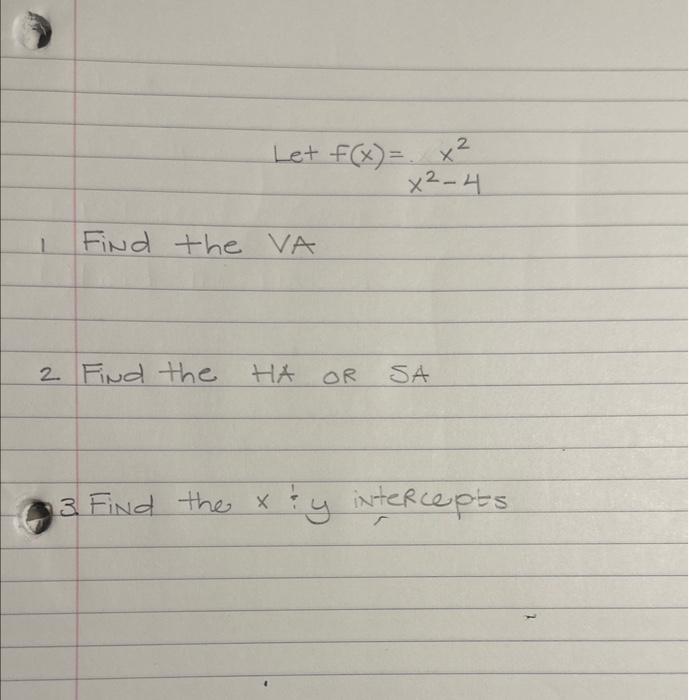 Let f(x) = x²
x² - 4
1 Find the VA
2 Find the HA OR SA
3. Find the x & y intercepts